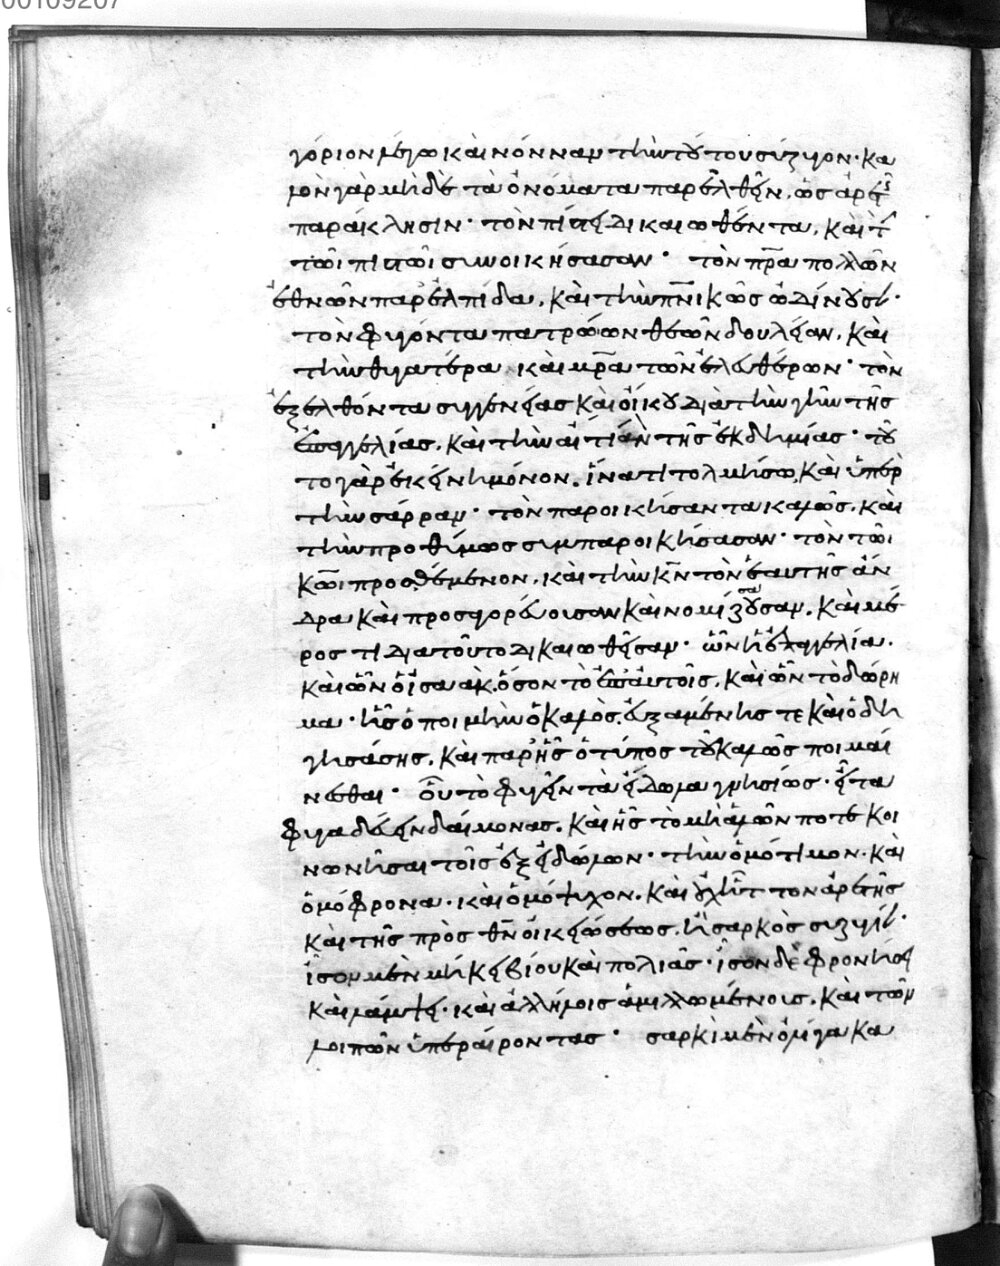 γόριον λέγω καὶ νόνναν τὴν τούτου σύζυγον· κα
λὸν γὰρ μηδὲ τὰ ὀνόματα παρελθεῖν, ὡς ἀρετῆς
παράκλησιν· τὸν πίστει δικαιωθέντα, καὶ τὴν
τῶι πιστῶι συνοικήσασαν· τὸν πρα πολλῶν
ἐθνῶν παρ' ἐλπίδα, καὶ τὴν πνικῶς ὠδίνουσαν·
τὸν φυγόντα πατρώων θεῶν δουλείαν, καὶ
τὴν θυγατέρα καὶ μρα τῶν ἐλευθέρων· τὸν
ἐξελθόντα συγγενείας καὶ οἴκου διὰ τὴν γῆν τῆς
ἐπαγγελίας, καὶ τὴν αἰτίαν τῆς ἐκδημίας· τοῦ
το γὰρ ἐκείνη μόνον, ἵνα τί τολμήσω, καὶ ὑπὲρ
τὴν σάρραν· τὸν παροικήσαντα καλῶς, καὶ
τὴν προθύμως συμπαροικήσασαν· τὸν τῶι
κωι προσθέμενον, καὶ τὴν κν τὸν ἑαυτῆς ἄν
δρα καὶ προσαγορεύουσαν καὶ νομίζουσαν, καὶ μέ
ρος τι διὰ τοῦτο δικαιωθεῖσαν· ὧν ἡ ἐπαγγελία.
καὶ ὧν ὁ ἰσαάκ, ὅσον τὸ ἐπ' αὐτοῖς, καὶ ὧν τὸ δώρη
μα· ἧς ὁ ποιμὴν ὁ καλὸς, εὐξαμένης τε καὶ ὁδη
γησάσης, καὶ παρ' ἧς ὁ τύπος τοῦ καλῶς ποιμαί
νεσθαι· οὗ τὸ φυγεῖν τὰ εἴδωλα γνησίως· εἶτα
φυγαδεύειν δαίμονας, καὶ ἧς τὸ μὴ ἁλῶν ποτε κοι
νωνῆσαι τοῖς ἐξ εἰδώλων· τὴν ὁμότιμον· καὶ
ὁμόφρονα· καὶ ὁμόψυχον, καὶ οὐχ ἧττον ἀρετῆς
καὶ τῆς πρὸς θν οἰκειώσεως, ἢ σαρκὸς συζυγίαν·
ἴσον μὲν μήκει βίου καὶ πολιᾶς· ἴσον δὲ φρονήσει
καὶ λάμψει· καὶ ἀλλήλοις ἁμιλλωμένοις, καὶ τῶν
λοιπῶν ὑπεραίροντας· σαρκὶ μὲν ὀλίγα κα